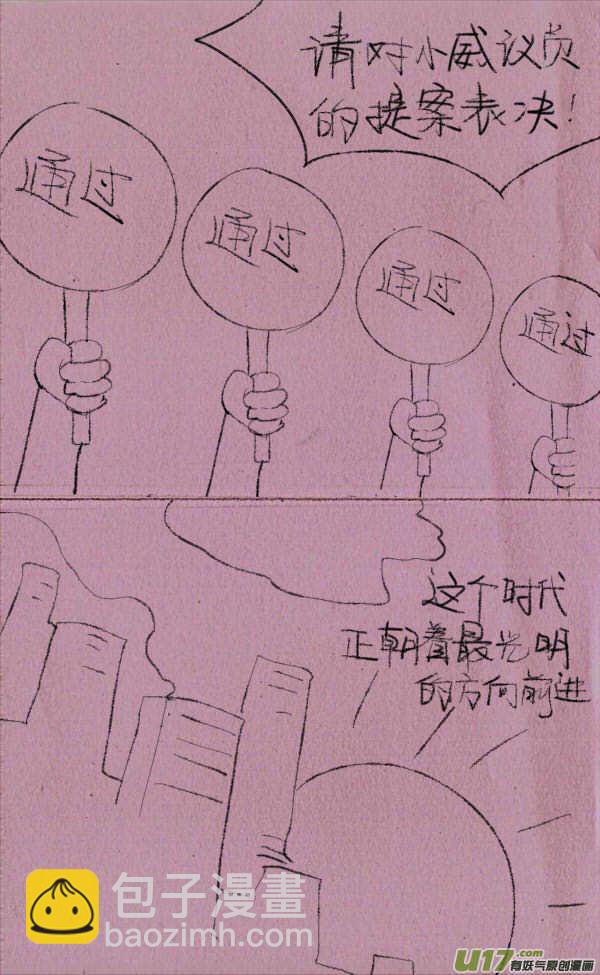 请对小威议员
的提案表决!
通过
通过
通过
通过
这个时代
正朝着最光明
的方向前进
包子漫畫
baozimh.com
U17.com
有妖气原创漫画